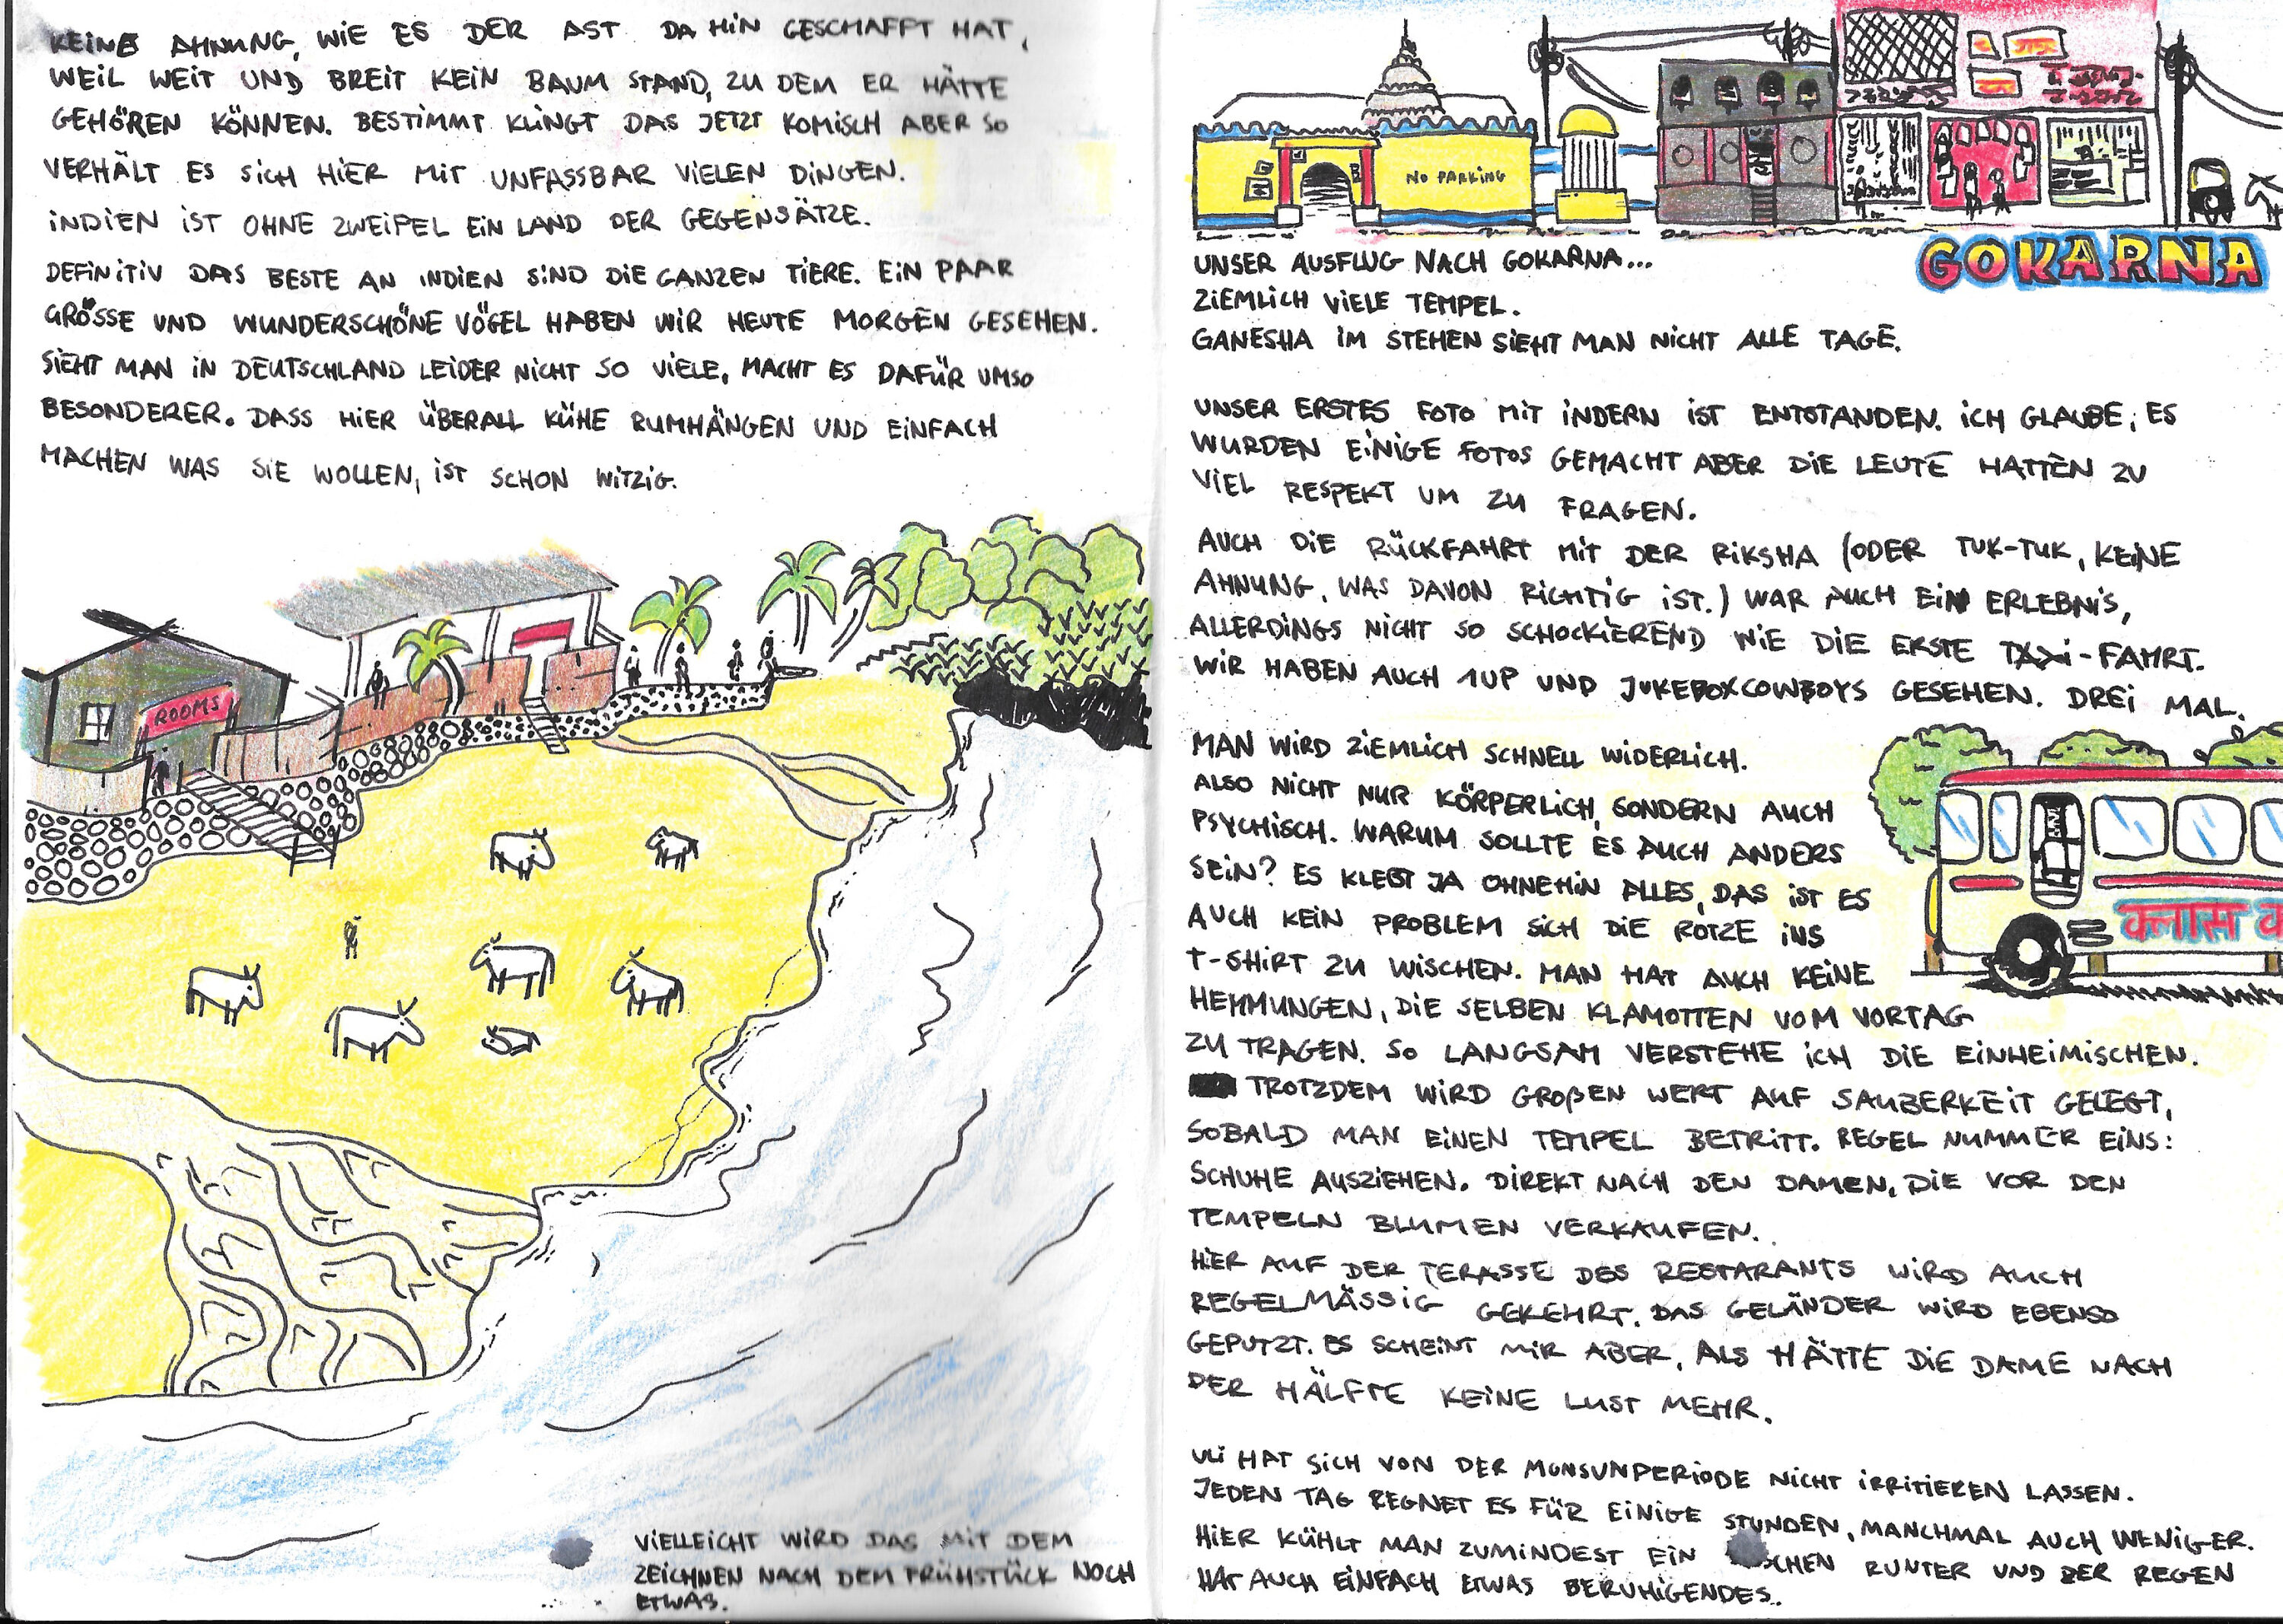 KEINE AHNUNG, WIE ES DER AST DA HIN GESCHAFFT HAT,
WEIL WEIT UND BREIT KEIN BAUM STAND, ZU DEM ER HÄTTE
GEHÖREN KÖNNEN. BESTIMMT KLINGT DAS JETZT KOMISCH ABER SO
VERHÄLT ES SICH HIER MIT UNFASSBAR VIELEN DINGEN.
INDIEN IST OHNE ZWEIFEL EIN LAND DER GEGENSÄTZE.
DEFINITIV DAS BESTE AN INDIEN SIND DIE GANZEN TIERE. EIN PAAR
GRÖSSE UND WUNDERSCHÖNE VÖGEL HABEN WIR HEUTE MORGEN GESEHEN.
SIEHT MAN IN DEUTSCHLAND LEIDER NICHT SO VIELE, MACHT ES DAFÜR UMSO
BESONDERER. DASS HIER ÜBERALL KÜHE RUMHÄNGEN UND EINFACH
MACHEN WAS SIE WOLLEN, IST SCHON WITZIG.
ROOMS
VIELLEICHT WIRD DAS MIT DEM
ZEICHNEN NACH DEM FRÜHSTÜCK NOCH
ETWAS.
NO PARKING
GOKARNA
UNSER AUSFLUG NACH GOKARNA...
ZIEMLICH VIELE TEMPEL.
GANESHA IM STEHEN SIEHT MAN NICHT ALLE TAGE.
UNSER ERSTES FOTO MIT INDERN IST ENTSTANDEN. ICH GLAUBE, ES
WURDEN EINIGE FOTOS GEMACHT ABER DIE LEUTE HATTEN ZU
VIEL RESPEKT UM ZU FRAGEN.
AUCH DIE RÜCKFAHRT MIT DER RIKSHA (ODER TUK-TUK, KEINE
AHNUNG, WAS DAVON RICHTIG IST.) WAR AUCH EIN ERLEBNIS,
ALLERDINGS NICHT SO SCHOCKIEREND WIE DIE ERSTE TAXI-FAHRT.
WIR HABEN AUCH 1UP UND JUKEBOXCOWBOYS GESEHEN. DREI MAL.
MAN WIRD ZIEMLICH SCHNELL WIDERLICH.
ALSO NICHT NUR KÖRPERLICH, SONDERN AUCH
PSYCHISCH. WARUM SOLLTE ES AUCH ANDERS
SEIN? ES KLEBT JA OHNEHIN ALLES, DAS IST ES
AUCH KEIN PROBLEM SICH DIE ROTZE INS
T-SHIRT ZU WISCHEN. MAN HAT AUCH KEINE
HEMMUNGEN, DIE SELBEN KLAMOTTEN VOM VORTAG
ZU TRAGEN. SO LANGSAM VERSTEHE ICH DIE EINHEIMISCHEN.
TROTZDEM WIRD GROßEN WERT AUF SAUBERKEIT GELEGT,
SOBALD MAN EINEN TEMPEL BETRITT. REGEL NUMMER EINS:
SCHUHE AUSZIEHEN. DIREKT NACH DEN DAMEN, DIE VOR DEN
TEMPELN BLUMEN VERKAUFEN.
HIER AUF DER TERASSE DES RESTARANTS WIRD AUCH
REGELMÄSSIG GEKEHRT. DAS GELÄNDER WIRD EBENSO
GEPUTZT. ES SCHEINT MIR ABER, ALS HÄTTE DIE DAME NACH
DER HÄLFTE KEINE LUST MEHR.
ULI HAT SICH VON DER MONSUNPERIODE NICHT IRRITIEREN LASSEN.
JEDEN TAG REGNET ES FÜR EINIGE STUNDEN, MANCHMAL AUCH WENIGER.
HIER KÜHLT MAN ZUMINDEST EIN SCHEN RUNTER UND DER REGEN
HAT AUCH EINFACH ETWAS BERUHIGENDES.
क्लास